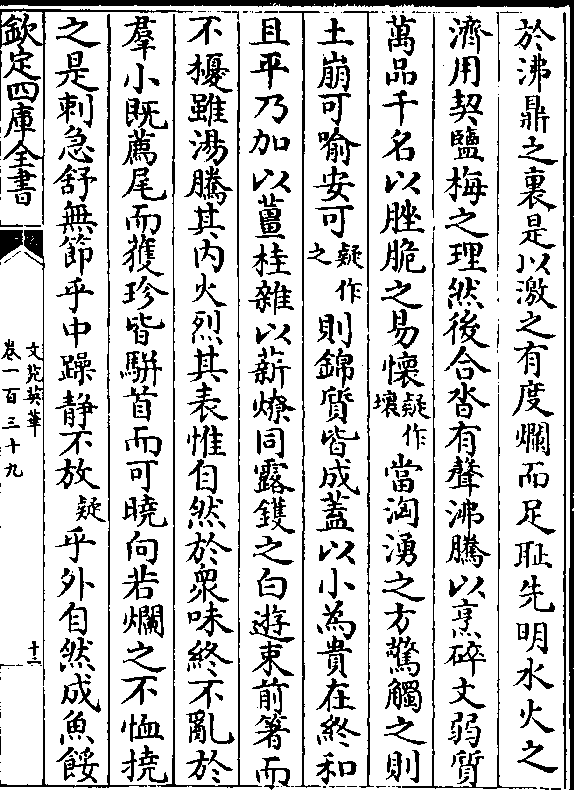 於沸鼎之裏是以激之有度爛而足耻先明水火之
濟用契鹽梅之理然後合沓有聲沸騰以烹碎丈弱質
萬品千名以脞脆之易懷疑作壞當洶湧之方驚觸之則
土崩可喻安可疑作之則錦質皆成蓋以小為貴在終和
且平乃加以薑桂雜以薪燎同露鑊之白遊束前箸而
不擾雖湯騰其内火烈其表惟自然於衆味終不亂於
羣小既薦尾而獲珍皆駢首而可曉向若爛之不恤撓
之是刺急舒無節乎中躁静不放疑乎外自然成魚餒
欽定四庫全書
文苑英華
卷一百三十九
十二